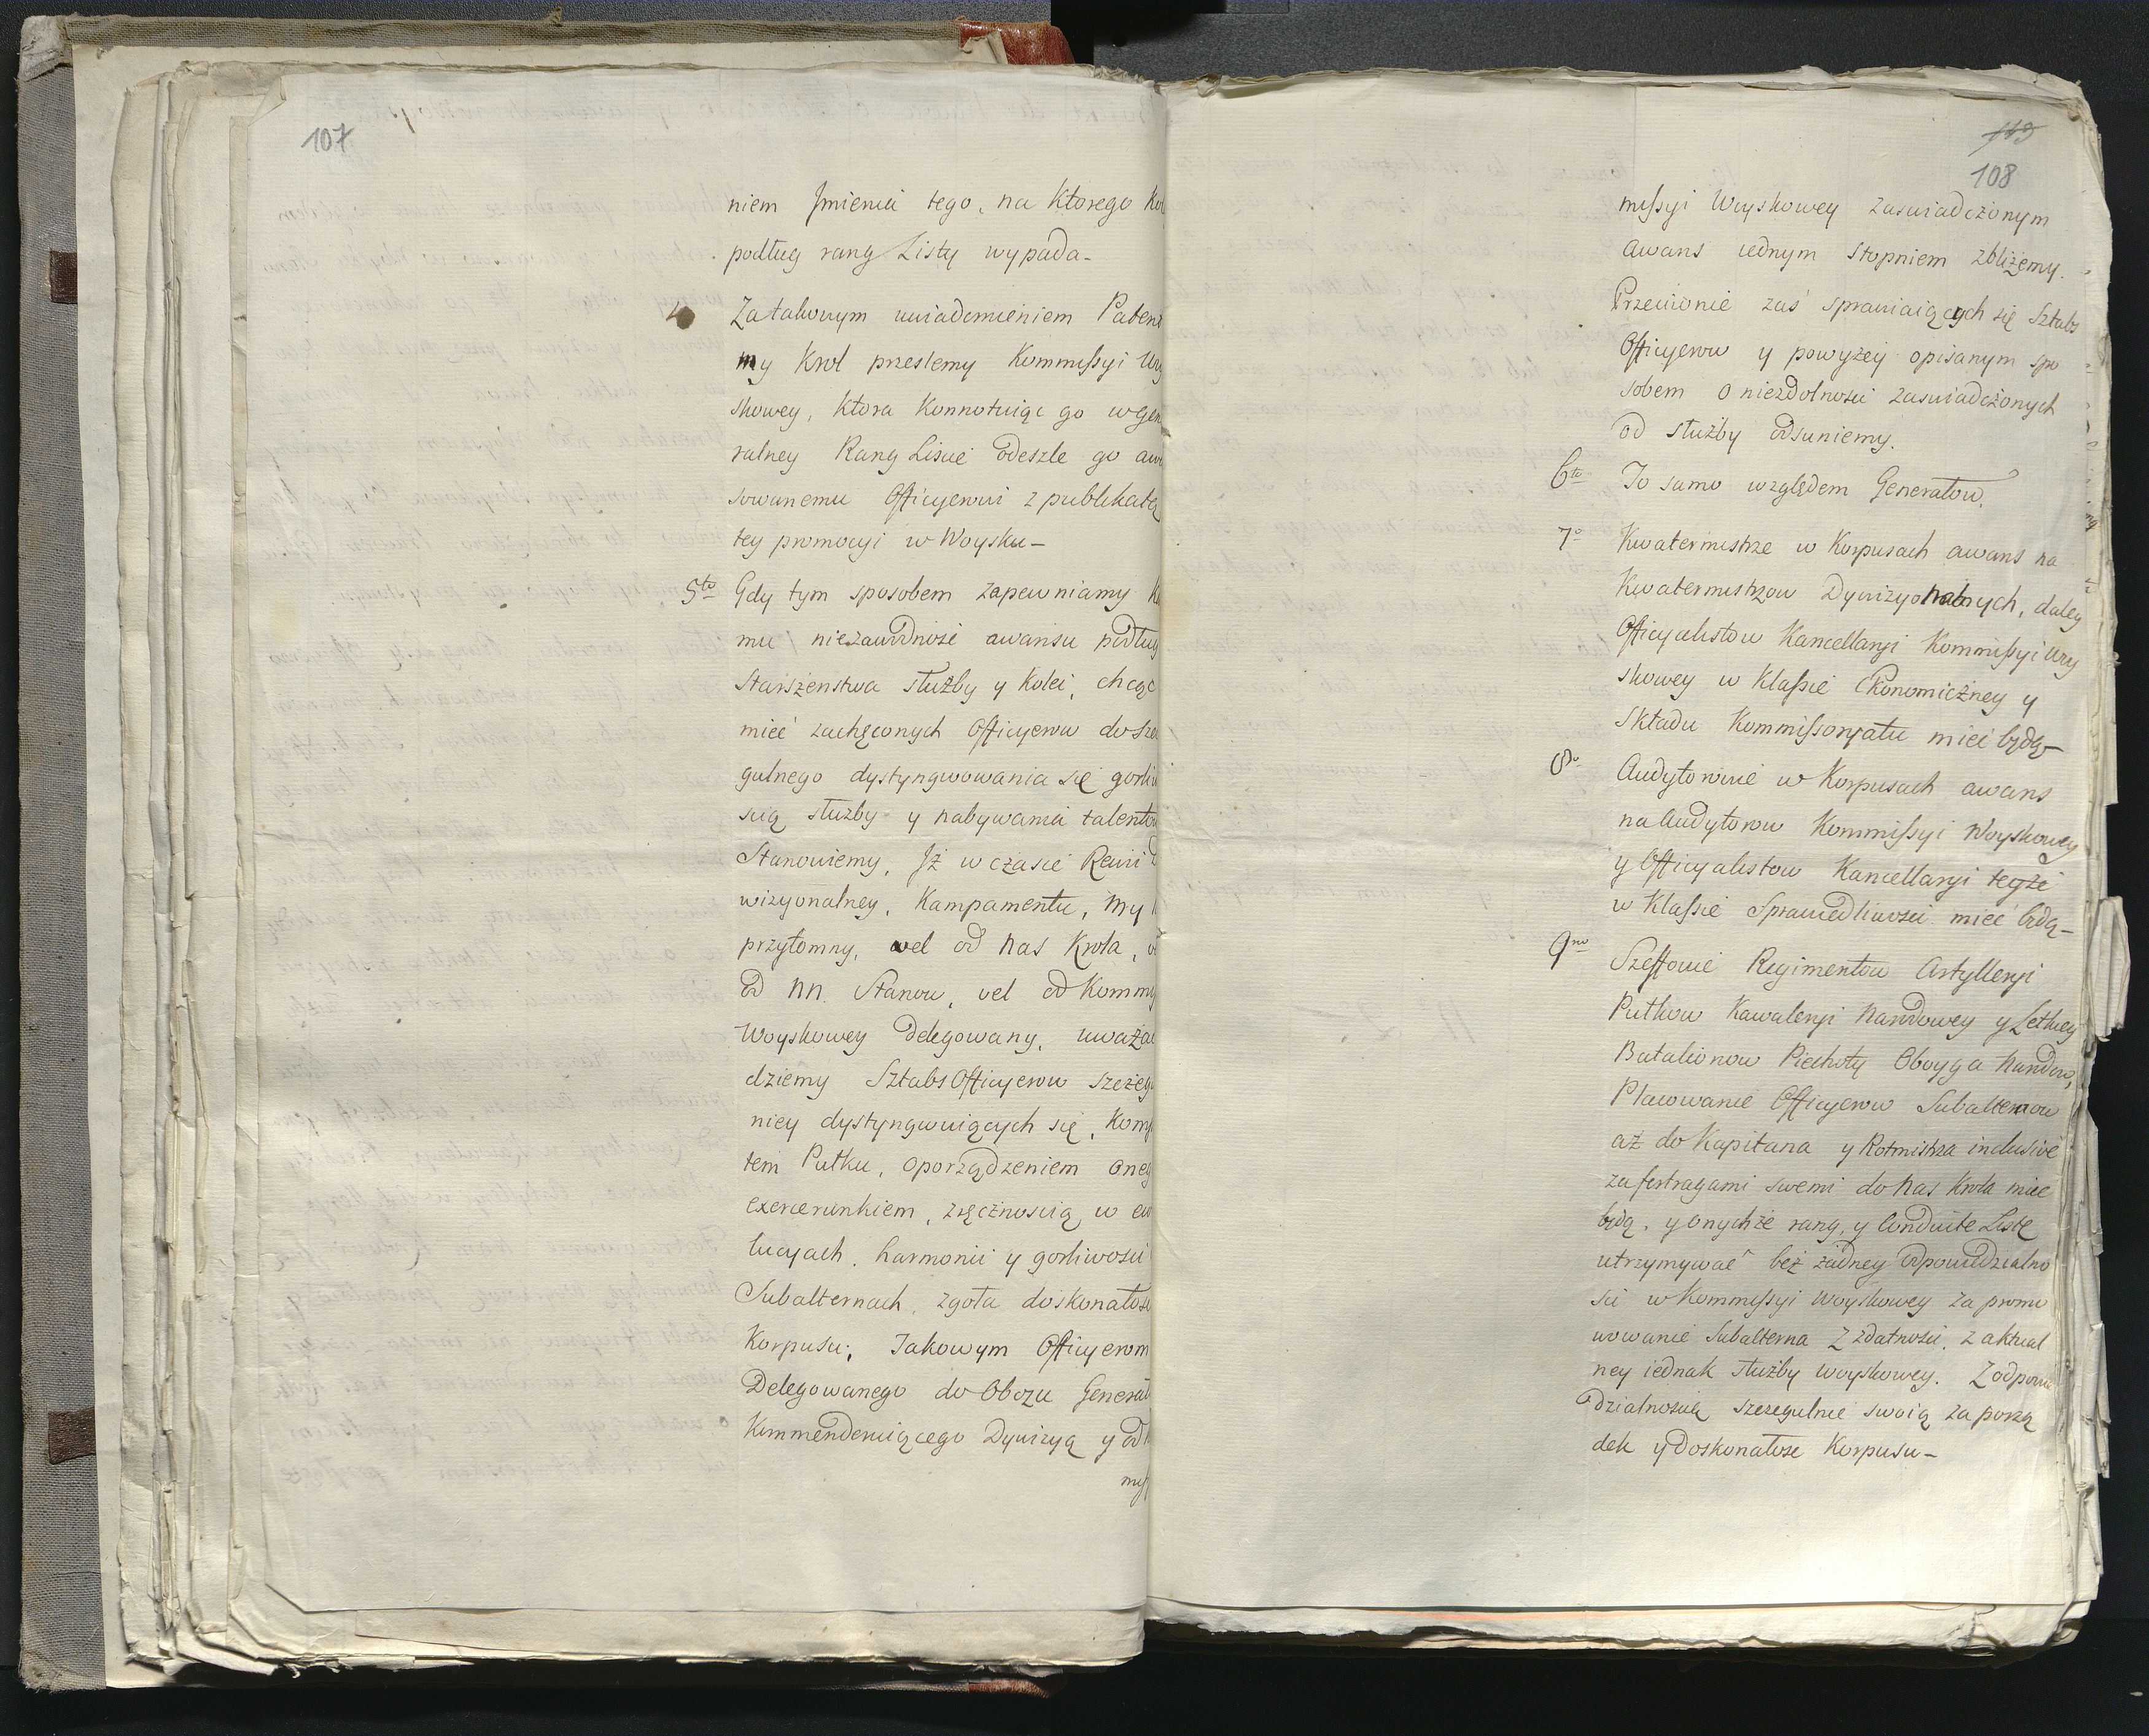 107
niem Jmienia tego, na Ktorego Kol
podług rang Listy wypada-
4 Zatakowym uwiadomieniem Patent
my Krol przeslemy Kommissyi Woy
skowey, Ktora Konnotuiąc go w Gen
ralney Rang Liscie odeszle go awa
sowanemu Officyerowi z publikatą
tey promocyi w Woysku-
5to Gdy tym sposobem zapewniamy Ka
mu niezawodnosć awansu podług
Starszenstwa służby y Kolei, chcąc
mieć zachęconych Officyerow do szcze
gulnego dystyngwowania się gorliwo
scią służby y nabywania talentow
Stanowiemy, Jż w czasie Rewii D
wizyonalney, Kampamentu, My
przytomny, vel od Nas Krola, v
od NN. Stanow, vel od Kommis
Woyskowey Delegowany, uważać
dziemy SztabsOfficyerow szczegu
niey dystyngwuiących się, Komp
tem Pułku, oporządzeniem oneg
exercerunkiem, zręcznoscią w ewo
lucyach, harmonii y gorliwosci
Subalternach, zgoła doskonałosc
Korpusu; Jakowym Officyerom
Delegowanego do Obozu Generał
Kommenderuiącego Dywizyą y od K
miss
108
missyi Woyskowey zaswiadczonym
Awans iednym stopniem zbliżemy.
Przeciwnie zaś sprawiaiących się Sztabs
Officyerow y powyżey opisanym spo
sobem o niezdolnosci zaswiadczonych
od służby odsuniemy.
6to To samo względem Generałow.
7o Kwatermistrze w Korpusach awans na
Kwatermistrzow Dywizyonalnych, daley
Officyalistow Kancellaryi Kommissyi Woy
skowey w Klassie Ekonomiczney y
Składu Kommissoryatu mieć będą-
8o Audytorowie w Korpusach awans
na Audytorow Kommissyi Woyskowey
y Officyalistow Kancellaryi teyże
w Klassie Sprawiedliwosci mieć będą-
9no Szeffowie Regimentow Artylleryi
Pułkow Kawaleryi Narodowey y Letkiey
Batalionow Piechoty Oboyga Narodow,
Placowanie Officyerow Subalternow
aż do Kapitana y Rotmistrza inclusivé
za fortragami swemi do Nas Krola miec
będą, y onychże rang, y Conduite Listę
utrzymywać bez żadney odpowiedzialno
sci w Kommissyi Woyskowey za promo
wowanie Subalterna z zdatnosci, z aktual
ney iednak służby woyskowey. Z odpowie
dzialnoscią szczegulnie swoią za porzą
dek y Doskonałosc Korpusu-